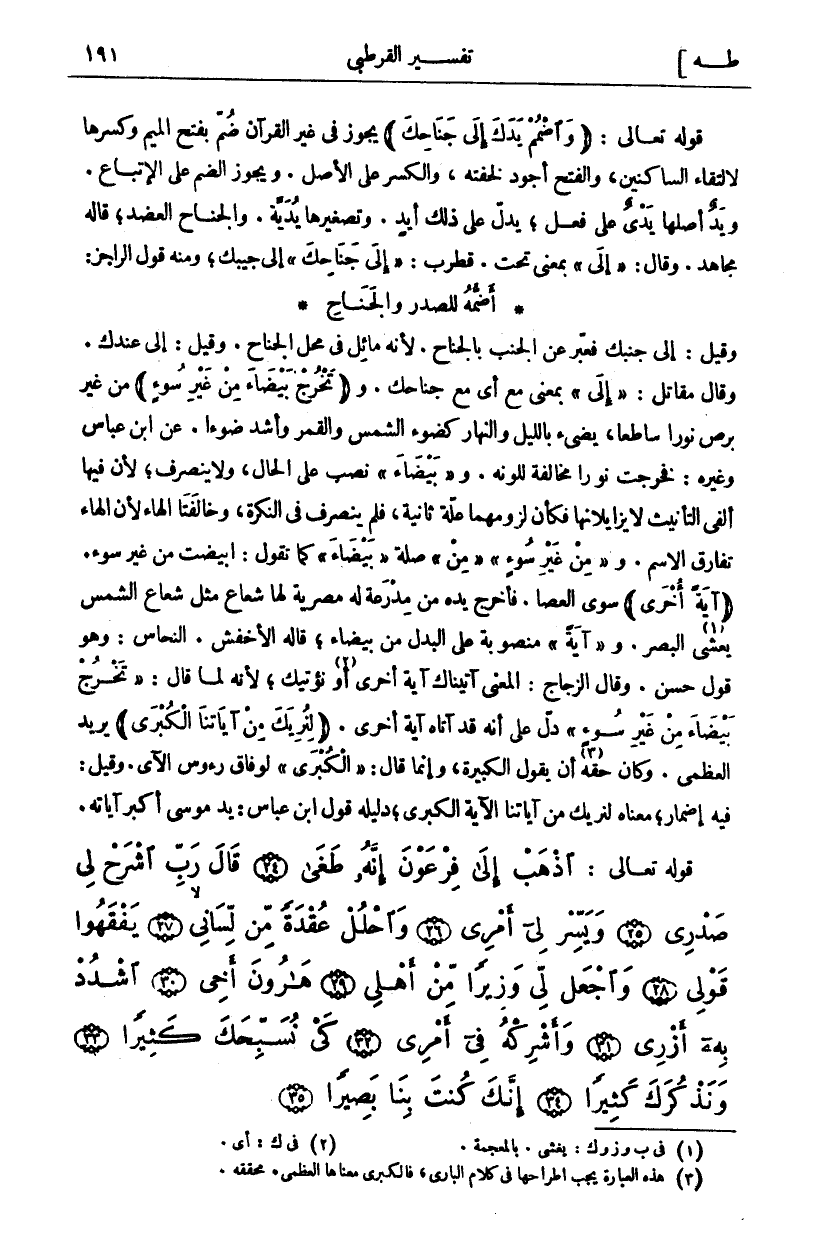 طـــه ] تفســـير القرطبي ١٩١
قوله تعــالى : ﴿ وَٱضْمُمْ يَدَكَ إِلَى جَنَاحِكَ ﴾ يجوز فى غير القرآن ضُمّ بفتح الميم وكسرها
لالتقاء الساكنين، والفتح أجود لخفته ، والكسر على الأصل . ويجوز الضم على الإتباع .
ويَدٌ أصلها يَدْىٌ على فعــل ؛ يدلّ على ذلك أيدٍ . وتصغيرها يُدَيَّة . والجنـاح العضد؛ قاله
مجاهد . وقال : « إلَى » بمعنى تحت . قطرب : « إِلَى جَنَاحِكَ » إلى جيبك ؛ ومنه قول الراجز:
* أَضُمُّهُ للصدر والجَنَـاحِ *
وقيل : إلى جنبك فعبّر عن الجنب بالجناح . لأنه مائل فى محل الجناح . وقيل : إلى عندك .
وقال مقاتل : « إلَى » بمعنى مع أى مع جناحك . و ﴿ تَخْرُجْ بَيْضَاءَ مِنْ غَيْرِ سُوءٍ ﴾ من غير
برص نورا ساطعا، يضىء بالليل والنهار كضوء الشمس والقمر وأشد ضوءا . عن ابن عباس
وغيره : فخرجت نورا مخالفة للونه . و « بَيْضَاءَ » نصب على الحال، ولاينصرف؛ لأن فيها
ألفى التأنيث لايزايلانها فكأن لزومهما علّة ثانية، فلم ينصرف فى النكرة، وخالَفَتَا الهاء لأن الهاء
تفارق الاسم . و « مِنْ غَيْرِ سُوءٍ » « مِنْ » صلة « بَيْضَاءَ » كما تقول : ابيضت من غير سوء.
﴿ آيَةً أُخْرَى ﴾ سوى العصا . فأخرج يده من مِدْرَعة له مصرية لها شعاع مثل شعاع الشمس
يعشى(١) البصر . و « آيَةً » منصوبة على البدل من بيضاء ؛ قاله الأخفش . النحاس : وهو
قول حسن . وقال الزجاج : المعنى آتيناك آية أخرى أو(٢) نؤتيك ؛ لأنه لمـا قال : « تَخْـرُجْ
بَيْضَاءَ مِنْ غَيْرِ سُــوءٍ » دلّ على أنه قد آتاه آية أخرى . ﴿ لِنُرِيَكَ مِنْ آيَاتِنَا الْكُبْرَى ﴾ يريد
العظمى . وكان حقه(٣) أن يقول الكبيرة، وإنما قال: « الْكُبْرَى » لوفاق رءوس الآى. وقيل:
فيه إضمار؛ معناه لنريك من آياتنا الآية الكبرى؛ دليله قول ابن عباس: يد موسى أكبر آياته.
قوله تعــالى : ٱذْهَبْ إِلَىٰ فِرْعَوْنَ إِنَّهُۥ طَغَىٰ ۝٢٤ قَالَ رَبِّ ٱشْرَحْ لِى
صَدْرِى ۝٢٥ وَيَسِّرْ لِىٓ أَمْرِى ۝٢٦ وَٱحْلُلْ عُقْدَةً مِّن لِّسَانِىۙ ۝٢٧ يَفْقَهُوا
قَوْلِى ۝٢٨ وَٱجْعَل لِّى وَزِيرًا مِّنْ أَهْلِى ۝٢٩ هَـٰرُونَ أَخِى ۝٣٠ ٱشْـدُدْ
بِهِۦٓ أَزْرِى ۝٣١ وَأَشْرِكْهُ فِىٓ أَمْرِى ۝٣٢ كَىْ نُسَبِّحَكَ كَثِيرًا ۝٣٣
وَنَذْكُرَكَ كَثِيرًا ۝٣٤ إِنَّكَ كُنتَ بِنَا بَصِيرًا ۝٣٥
(١) فى ب و ز و ك : يغشى . بالمعجمة . (٢) فى ك : أى .
(٣) هذه العبارة يجب اطراحها فى كلام البارى، فالكبرى معناها العظمى . محققه .